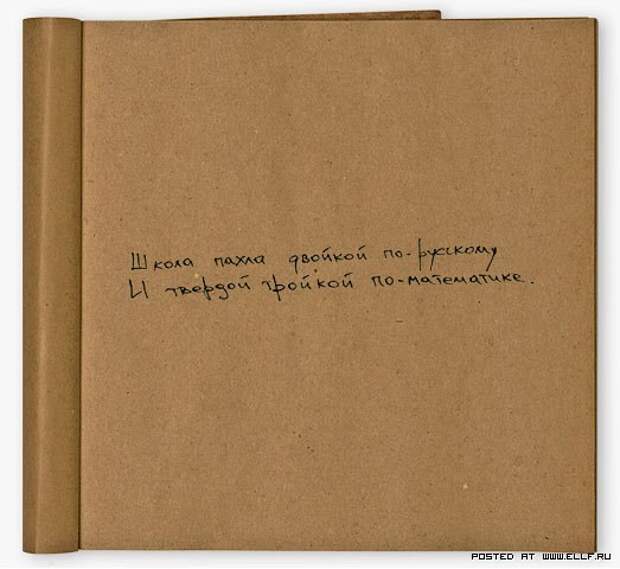 Школа пахла двойкой по-русскому
И твердой тройкой по-математике.
POSTED AT WWW.ELLF.RU